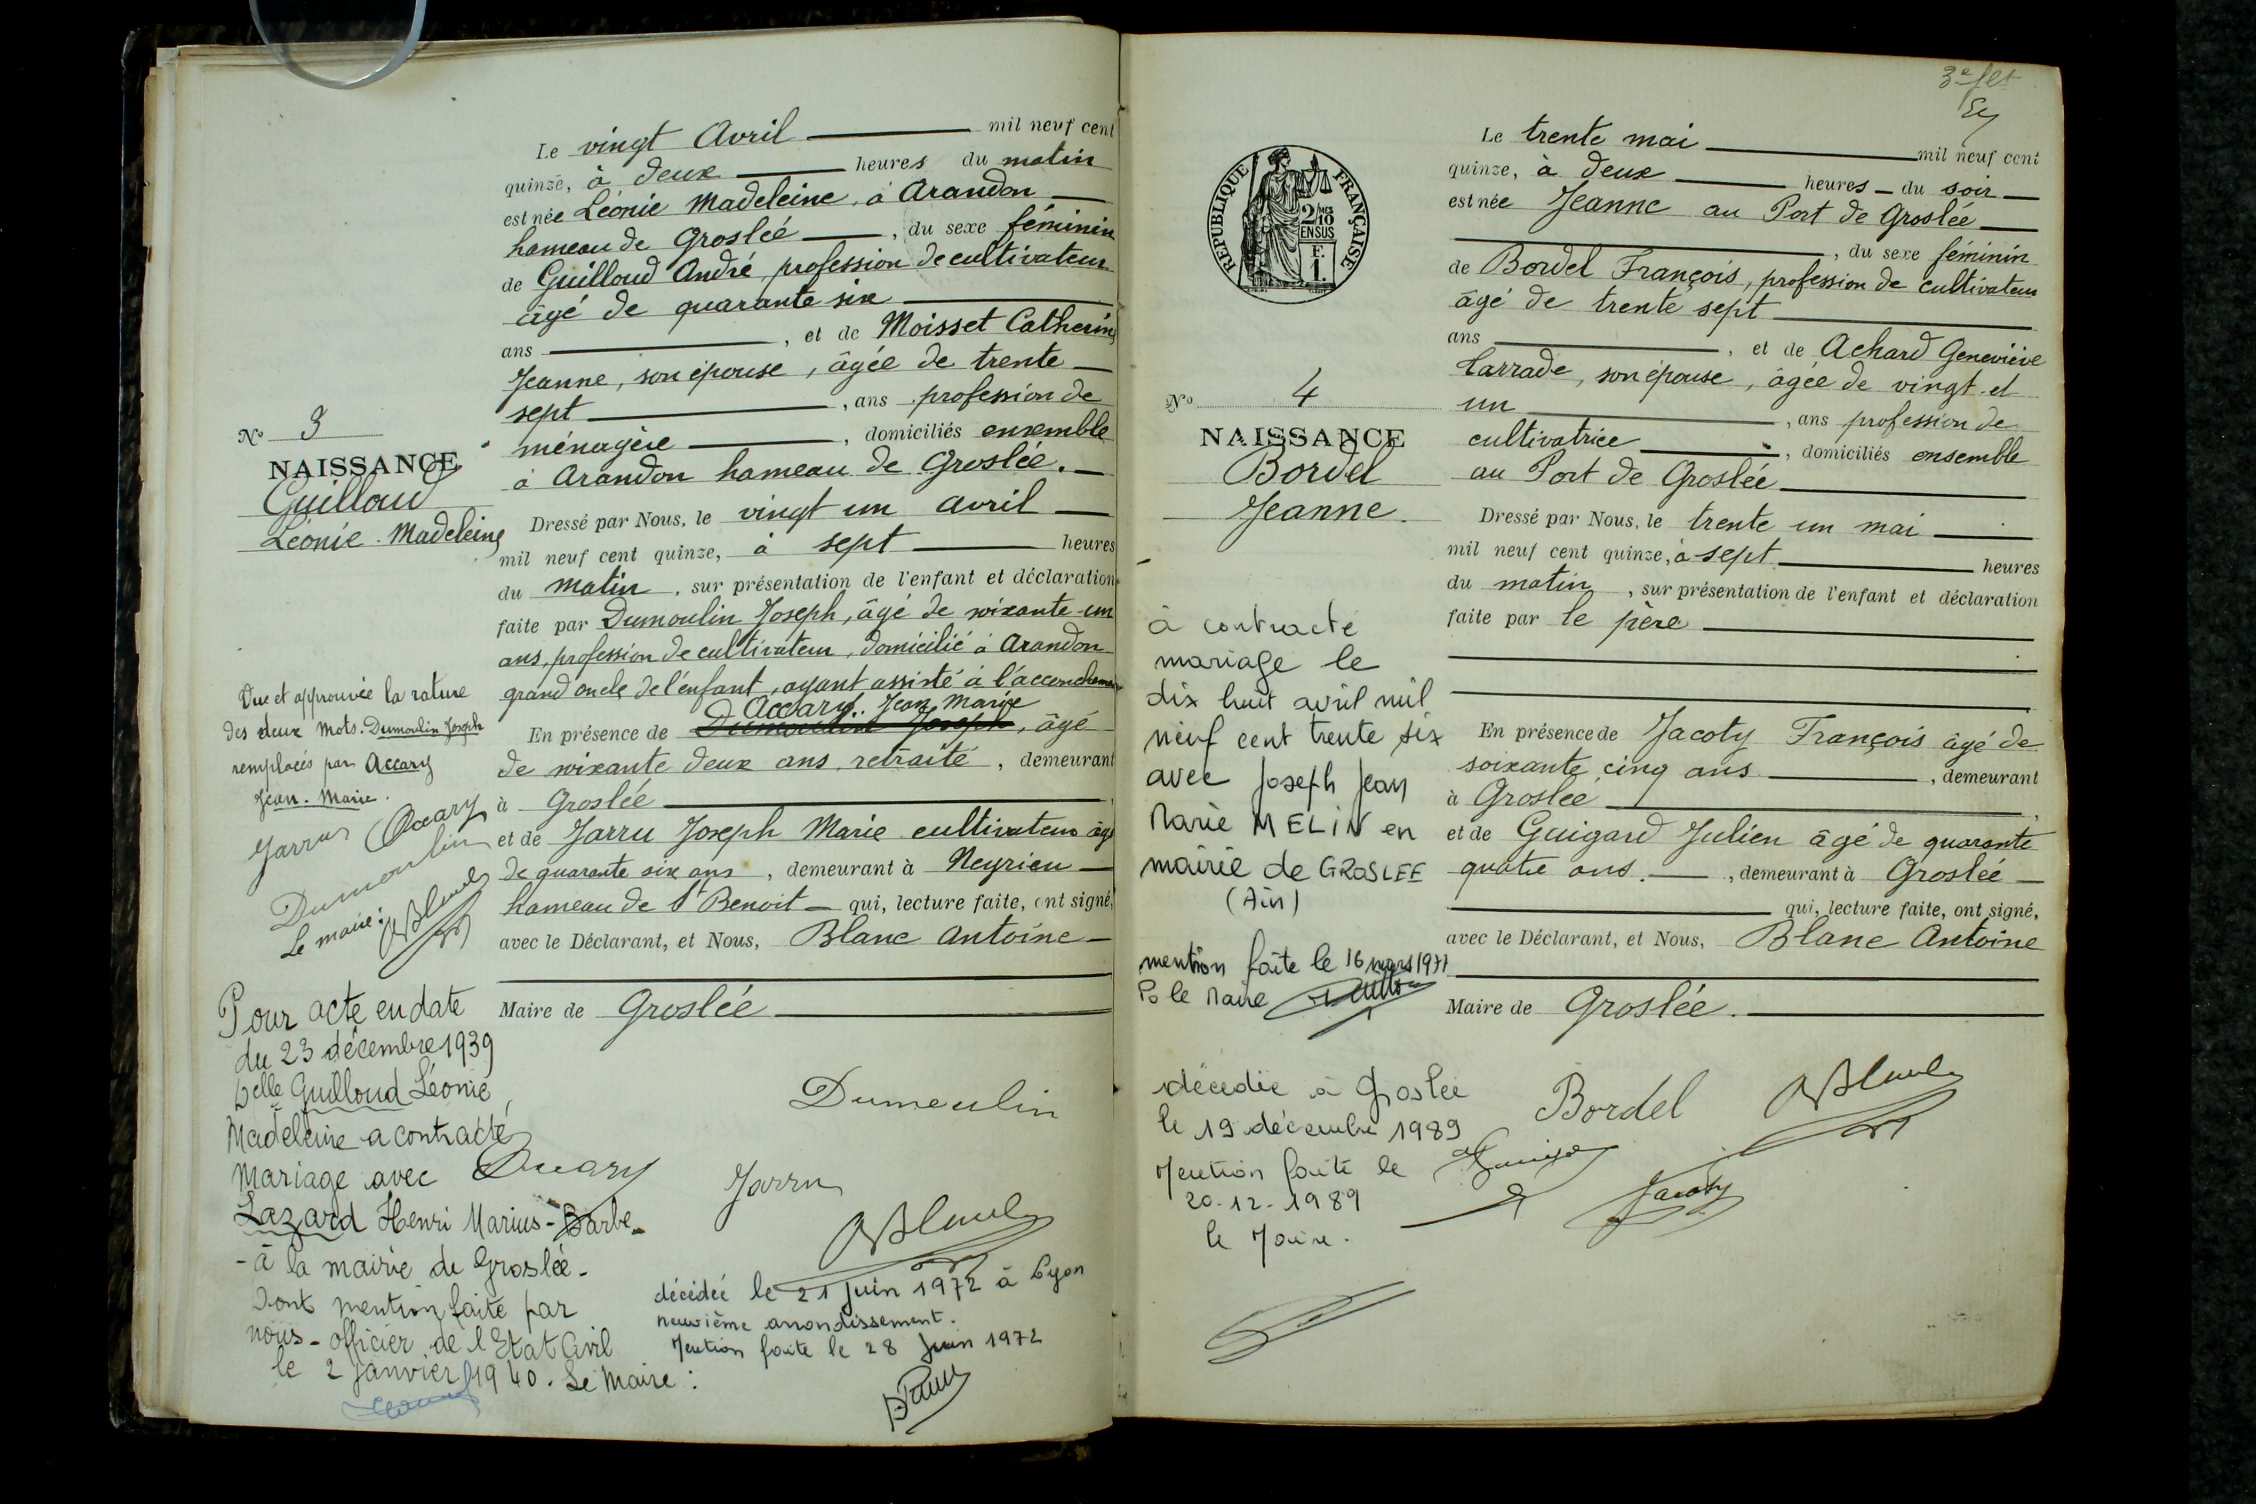 Le vingt Avril mil neuf cent
quinze, à deux heures du matin
est née Léonie Madeleine, à Arandon
hameau de Groslée, du sexe féminin
de Guilloud André, profession de cultivateur
âgé de quarante six
ans, et de Moisset Catherine
Jeanne, son épouse, âgée de trente
sept, ans profession de
ménagère, domiciliés ensemble
à Arandon hameau de Groslée.
Dressé par Nous, le vingt un avril
mil neuf cent quinze, à sept heures
du matin, sur présentation de l'enfant et déclaration
faite par Dumoulin Joseph, âgé de soixante-un
ans, profession de cultivateur, domicilié à Arandon
grand oncle de l'enfant, ayant assisté à l'accouchement
Accary Jean Marie
En présence de Dumoulin Joseph, âgé
de soixante deux ans, retraité, demeurant
à Groslée
et de Jarru Joseph Marie cultivateur âgé
de quarante six ans, demeurant à Neyrieu
hameau de St Benoit qui, lecture faite, ont signé,
avec le Déclarant, et Nous, Blanc Antoine
Maire de Groslée
Dumoulin
Accary
Jarru
ABlanc
décédée le 21 juin 1972 à Lyon
neuvième arrondissement.
Mention faite le 28 Juin 1972
No 3
NAISSANCE
Guilloud
Léonie Madeleine
Vue et approuvée la rature
des deux mots. Dumoulin Joseph
remplacés par Accary
Jean. Marie.
Jarru Accary
Dumoulin
Le maire: ABlanc
Pour acte en date
du 23 décembre 1939
Delle Guilloud Léonie
Madeleine a contracté
Mariage avec
Lazard Henri Marius-Barbe
- à la mairie de Groslée -
Dont mention faite par
nous - officier de l'Etat Civil
le 2 janvier 1940. Le Maire:
3e flet
Le trente mai mil neuf cent
quinze, à deux heures du soir
est née Jeanne au Port de Groslée
, du sexe féminin
de Bordel François, profession de cultivateur
âgé de trente sept
ans, et de Achard Geneviève
Larrade, son épouse, âgée de vingt et
un, ans profession de
cultivatrice, domiciliés ensemble
au Port de Groslée
Dressé par Nous, le trente un mai
mil neuf cent quinze, à sept heures
du matin, sur présentation de l'enfant et déclaration
faite par le père
En présence de Jacoty François âgé de
soixante cinq ans, demeurant
à Groslée
et de Guigard Julien âgé de quarante
quatre ans., demeurant à Groslée
qui, lecture faite, ont signé,
avec le Déclarant, et Nous, Blanc Antoine
Maire de Groslée.
Bordel
ABlanc
Jacoty
RÉPUBLIQUE FRANÇAISE
2/10 MES
EN SUS
F.
1.
No 4
NAISSANCE
Bordel
Jeanne.
à contracté
mariage le
dix huit avril mil
neuf cent trente six
avec Joseph Jean
Marie MELIN en
mairie de GROSLEE
(Ain)
mention faite le 16 mars 1977
Po le Maire
décédée à Groslée
le 19 décembre 1989
Mention faite le
20-12-1989
le Maire.